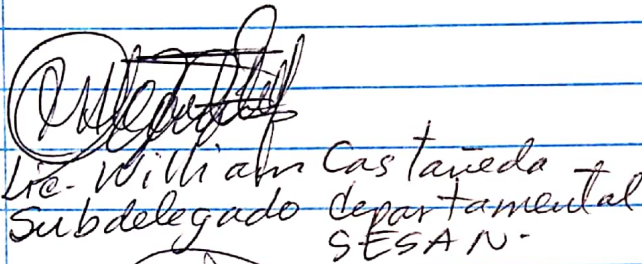 Lic. William Castañeda
Subdelegado departamental
SESAN.